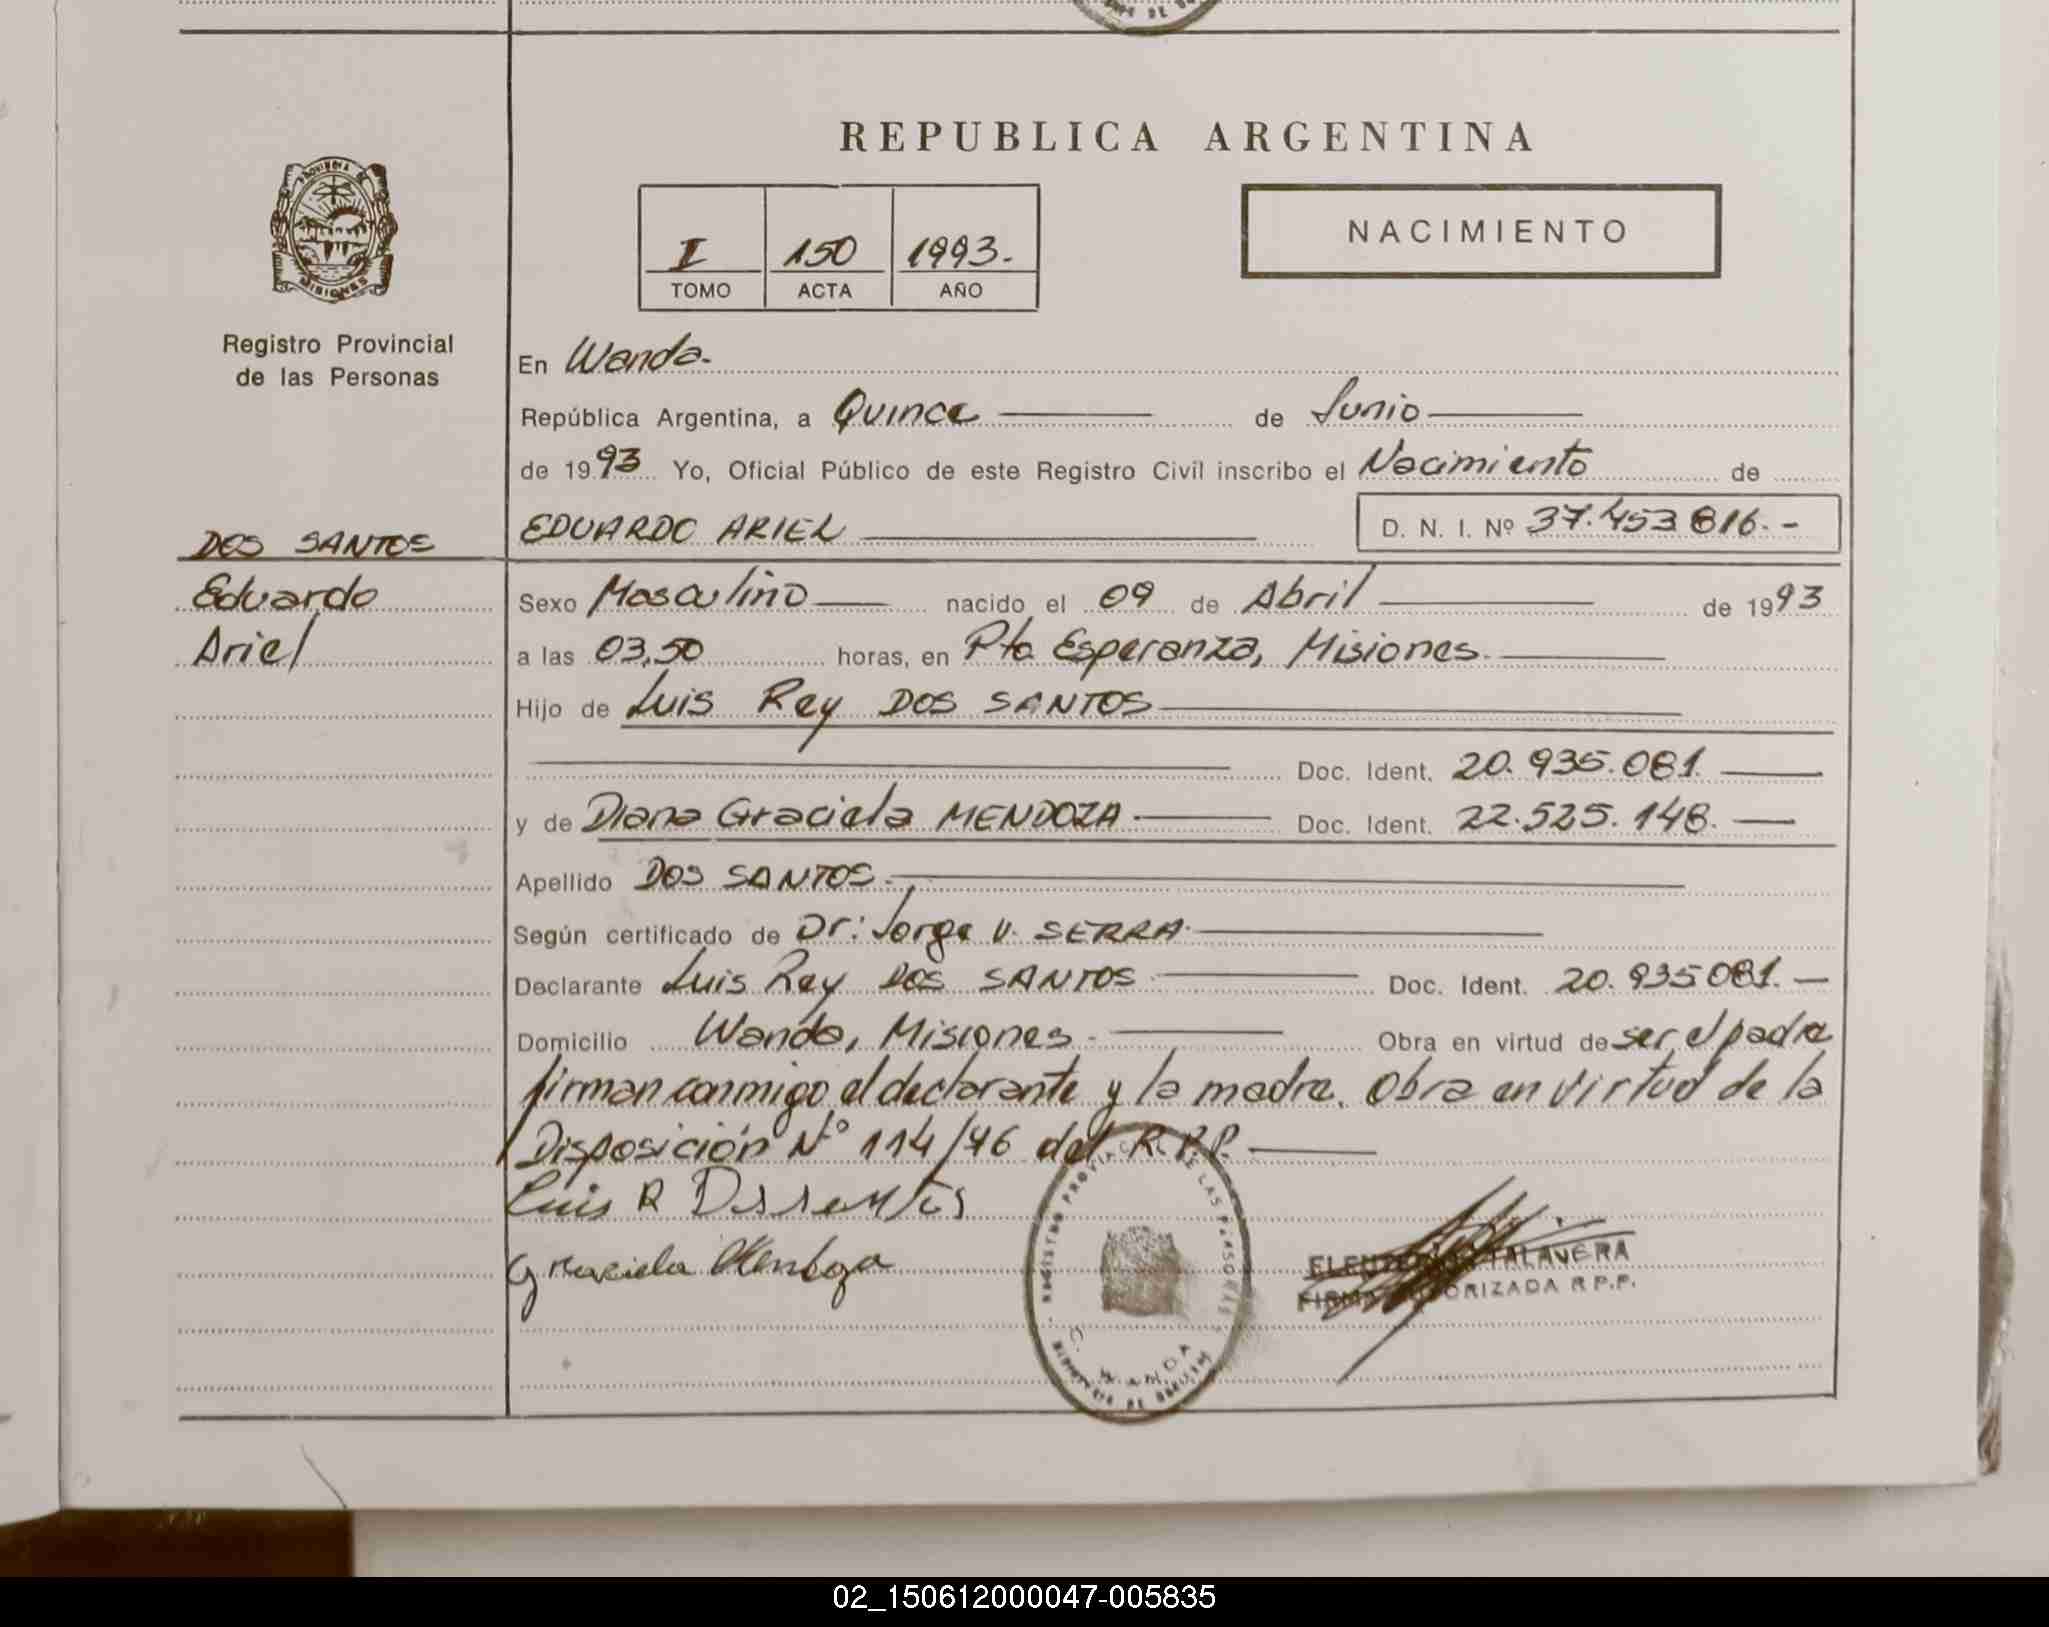 REPUBLICA ARGENTINA
PROVINCIA DE
MISIONES
I 150 1993.-
TOMO ACTA AÑO
NACIMIENTO
Registro Provincial
de las Personas
En Wanda.-
República Argentina, a Quince de Junio
de 1993 Yo, Oficial Público de este Registro Civil inscribo el Nacimiento de
DOS SANTOS EDUARDO ARIEL D. N. I. Nº 37.453.816.-
Eduardo Sexo Masculino nacido el 09 de Abril de 1993
Ariel a las 03,50 horas, en Pto. Esperanza, Misiones.
Hijo de Luis Rey DOS SANTOS
Doc. Ident. 20.935.081.
y de Diana Graciela MENDOZA Doc. Ident. 22.525.148.
Apellido DOS SANTOS.
Según certificado de Dr: Jorge V. SERRA
Declarante Luis Rey DOS SANTOS Doc. Ident. 20.935081.-
Domicilio Wanda, Misiones.- Obra en virtud de ser el padre
firman conmigo, el declarante y la madre. Obra en virtud de la
Disposición Nº 114/76 del R.P.P.
Luis R Dos santos
Graciela Mendoza
REGISTRO PROVINCIAL DE LAS PERSONAS
WANDA
TALAVERA
FIRMA AUTORIZADA R.P.P.
02_150612000047-005835